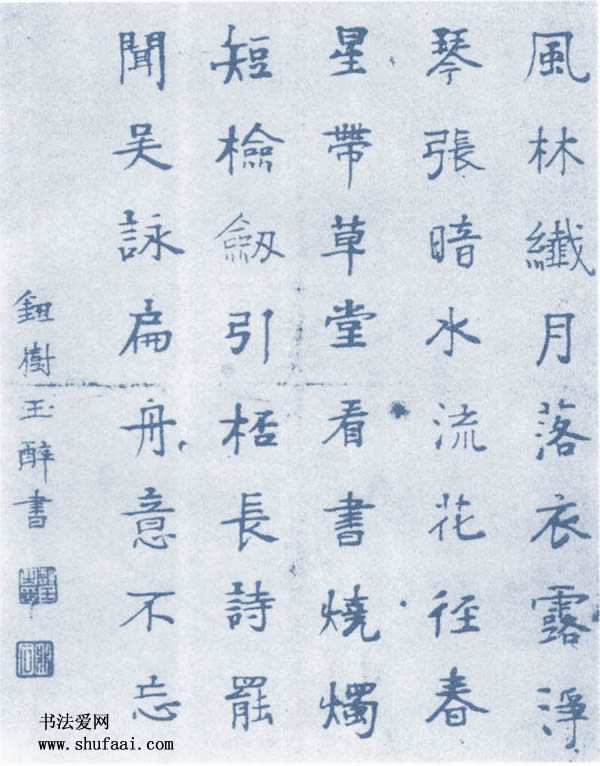 風林纖月落衣露淨
琴張暗水流花徑春
星帶草堂看書燒燭
短檢劒引桮長詩罷
聞吴詠扁舟意不忘
鈕樹玉醉書
书法爱网
www.shufaai.com